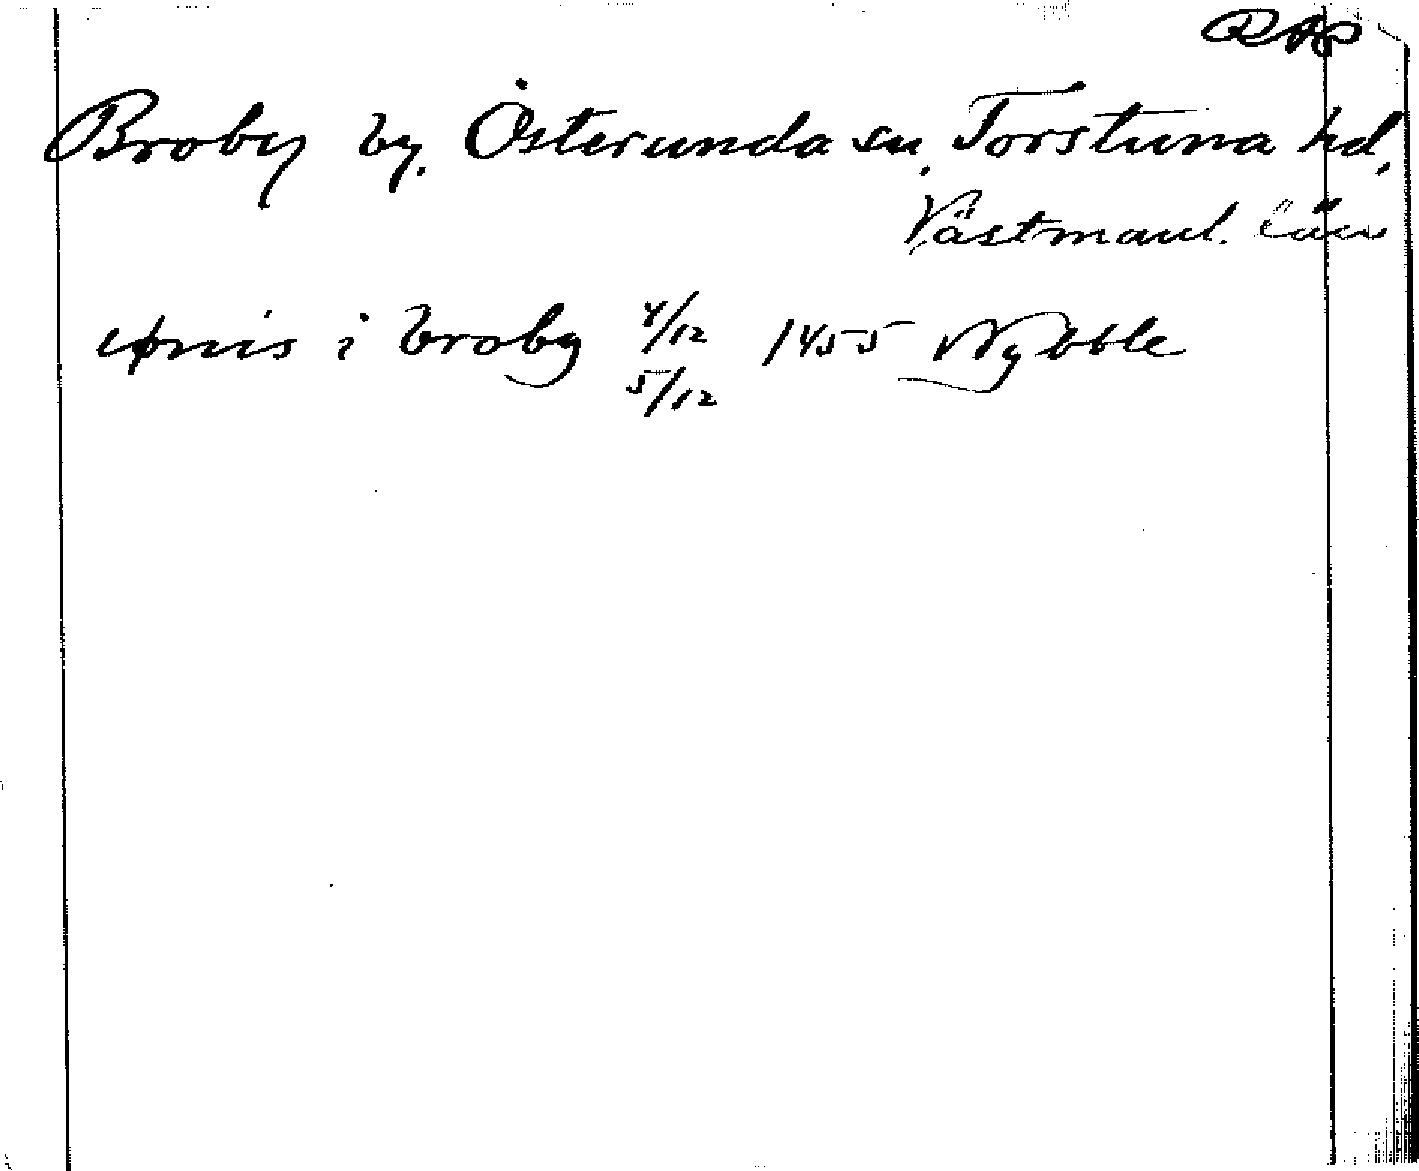 RAp
Broby by. Österunda sn. Torstuna hd.
Västmanl. län
i broby 4/12 1455 Nybble
5/12